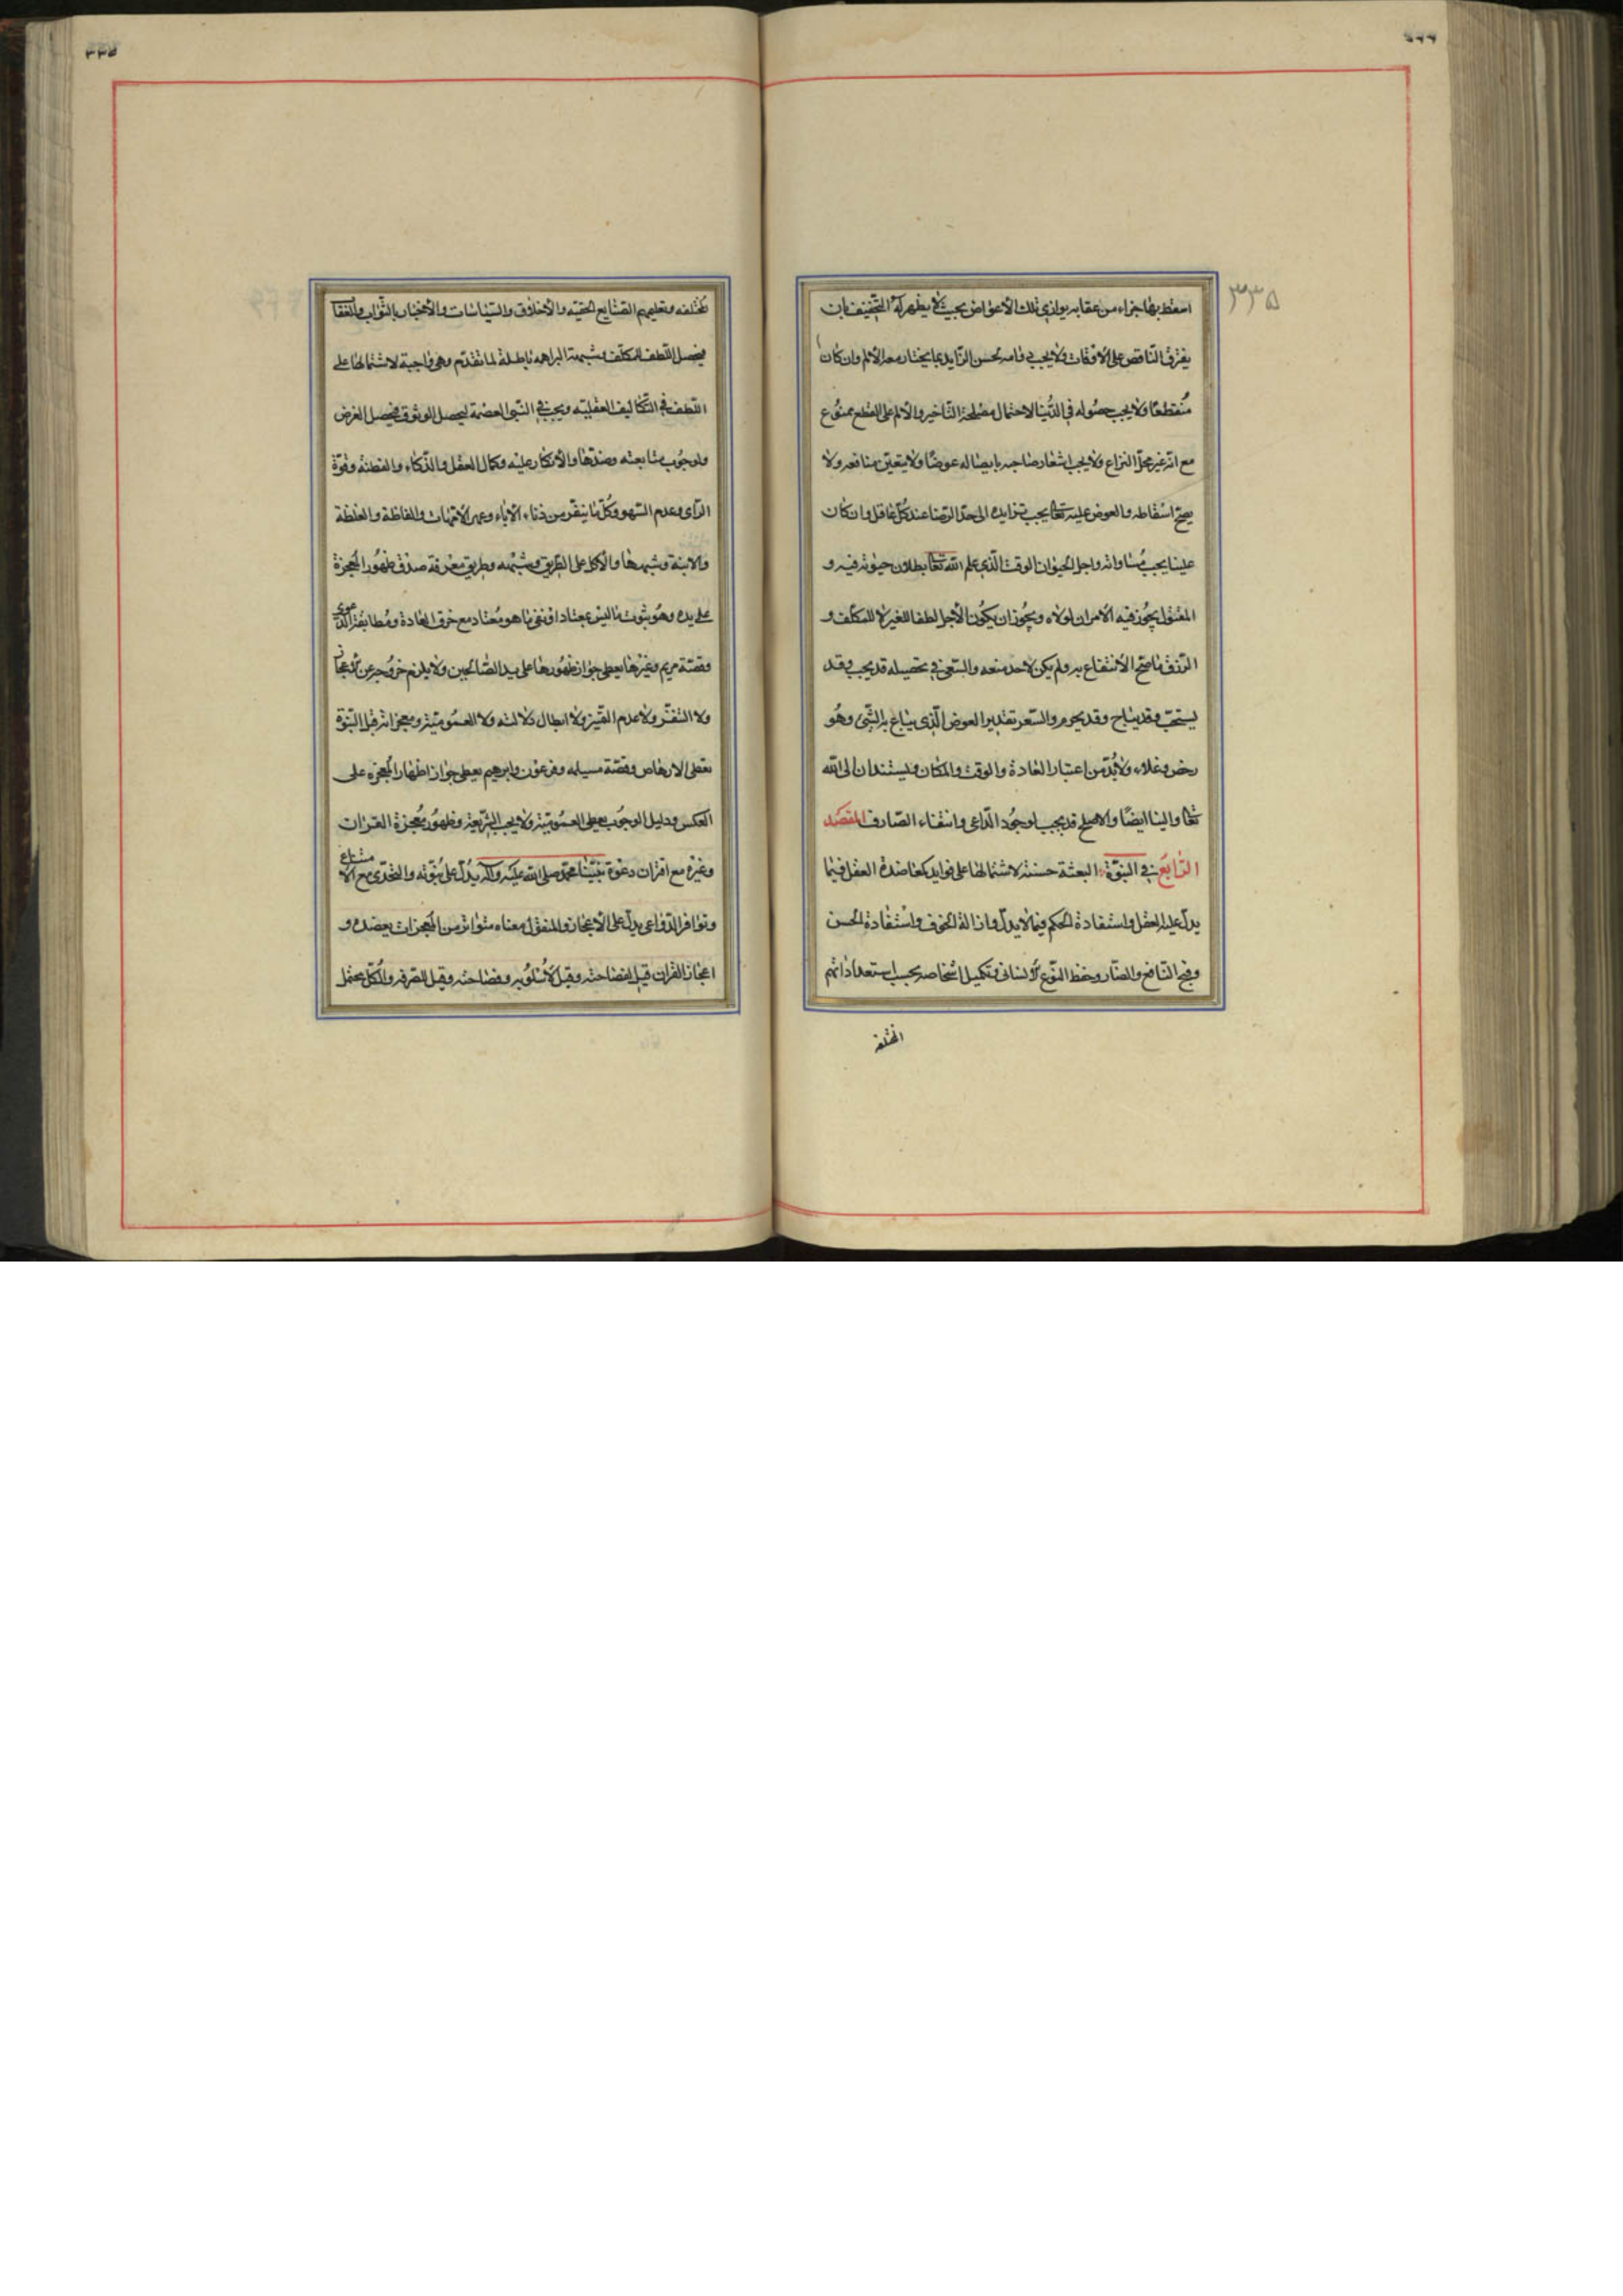 اسقط بها جزاء من عقابه يوازي تلك الاعواض بحيث لا يظهر له التخفيف بان
يفرق الناقص على الاوقات ولا يجب دوامه لحسن الزايد بما يختار معه الالم وان كان
منقطعا ولا يجب حصوله في الدنيا لاحتمال مصلحة التاخير والالم على القطع ممنوع
مع انه غير محل النزاع ولا يجب اشعار صاحبه بايصاله عوضا ولا يتعين منافعه ولا
يصح اسقاطه والعوض عليه تعالى يجب تزايده الى حد الرضا عند كل عاقل وان كان
علينا يجب مساواته واجل الحيوان الوقت الذي علم الله تعالى بطلان حيوته فيه و
المقتول يجوز فيه الامران لولاه ويجوز ان يكون الاجل لطفا للغير لا للمكلف و
الرزق ما صح الانتفاع به ولم يكن لاحد منعه والسعي في تحصيله قد يجب وقد
يستحب وقد يباح وقد يحرم والسعر تقدير العوض الذي يباع به الشئ وهو
رخص وغلاء ولا بد من اعتبار العادة والوقت والمكان ويستندان الى الله
تعالى والينا ايضا والاصلح قد يجب لوجود الداعي وانتفاء الصارف المقصد
الرابع في النبوة البعثة حسنة لاشتمالها على فوايد كمعاضدة العقل فيما
يدل عليه العقل واستفادة الحكم فيما لا يدل وازالة الخوف واستفادة الحسن
وقبح النافع والضار وحفظ النوع الانساني وتكميل اشخاصه بحسب استعداداتهم
المختلفة
المختلفه وتعليمهم الصنايع الخفيه والاخلاق والسياسات والاخبار بالثواب والعقا
فيحصل اللطف للمكلف وشبهة البراهمه باطلة لما تقدم وهي واجبة لاشتمالها على
اللطف في التكاليف العقليه ويجب في النبي العصمة ليحصل الوثوق فيحصل الغرض
ولوجوب متابعته وضدها والانكار عليه وكمال العقل والذكاء والفطنة وقوة
الراى وعدم السهو وكل ما ينفر من دناءة الاباء وعهر الامهات والفظاظة والغلظة
والابنة وشبهها والاكل على الطريق وشبهه وطريق معرفة صدقه ظهور المعجزة
على يده وهو ثبوت ما ليس بمعتاد او نفى ما هو معتاد مع خرق العادة ومطابقة الدعوى
وقصة مريم وغيرها يعطى جواز ظهورها على يد الصالحين ولا يلزم خروجه عن الاعجاز
ولا التنفر ولا عدم التميز ولا ابطال دلالته ولا العمومية ومعجزاته قبل النبوة
تعطى الارهاص وقصة مسيلمه وفرعون وابرهيم يعطى جواز اظهار المعجزه على
العكس ودليل الوجوب يعطى العمومية ولا يجب الشريعة وظهور معجزة القران
وغيره مع اقتران دعوة نبينا محمد صلى الله عليه واله يدل على نبوته والتحدى مع الامتناع
وتوافر الدواعى يدل على الاعجاز والمنقول معناه متواتر من المعجزات يعضده و
اعجاز القران قيل لفصاحته وقيل لاسلوبه وفصاحته وقيل للصرفه والكل محتمل